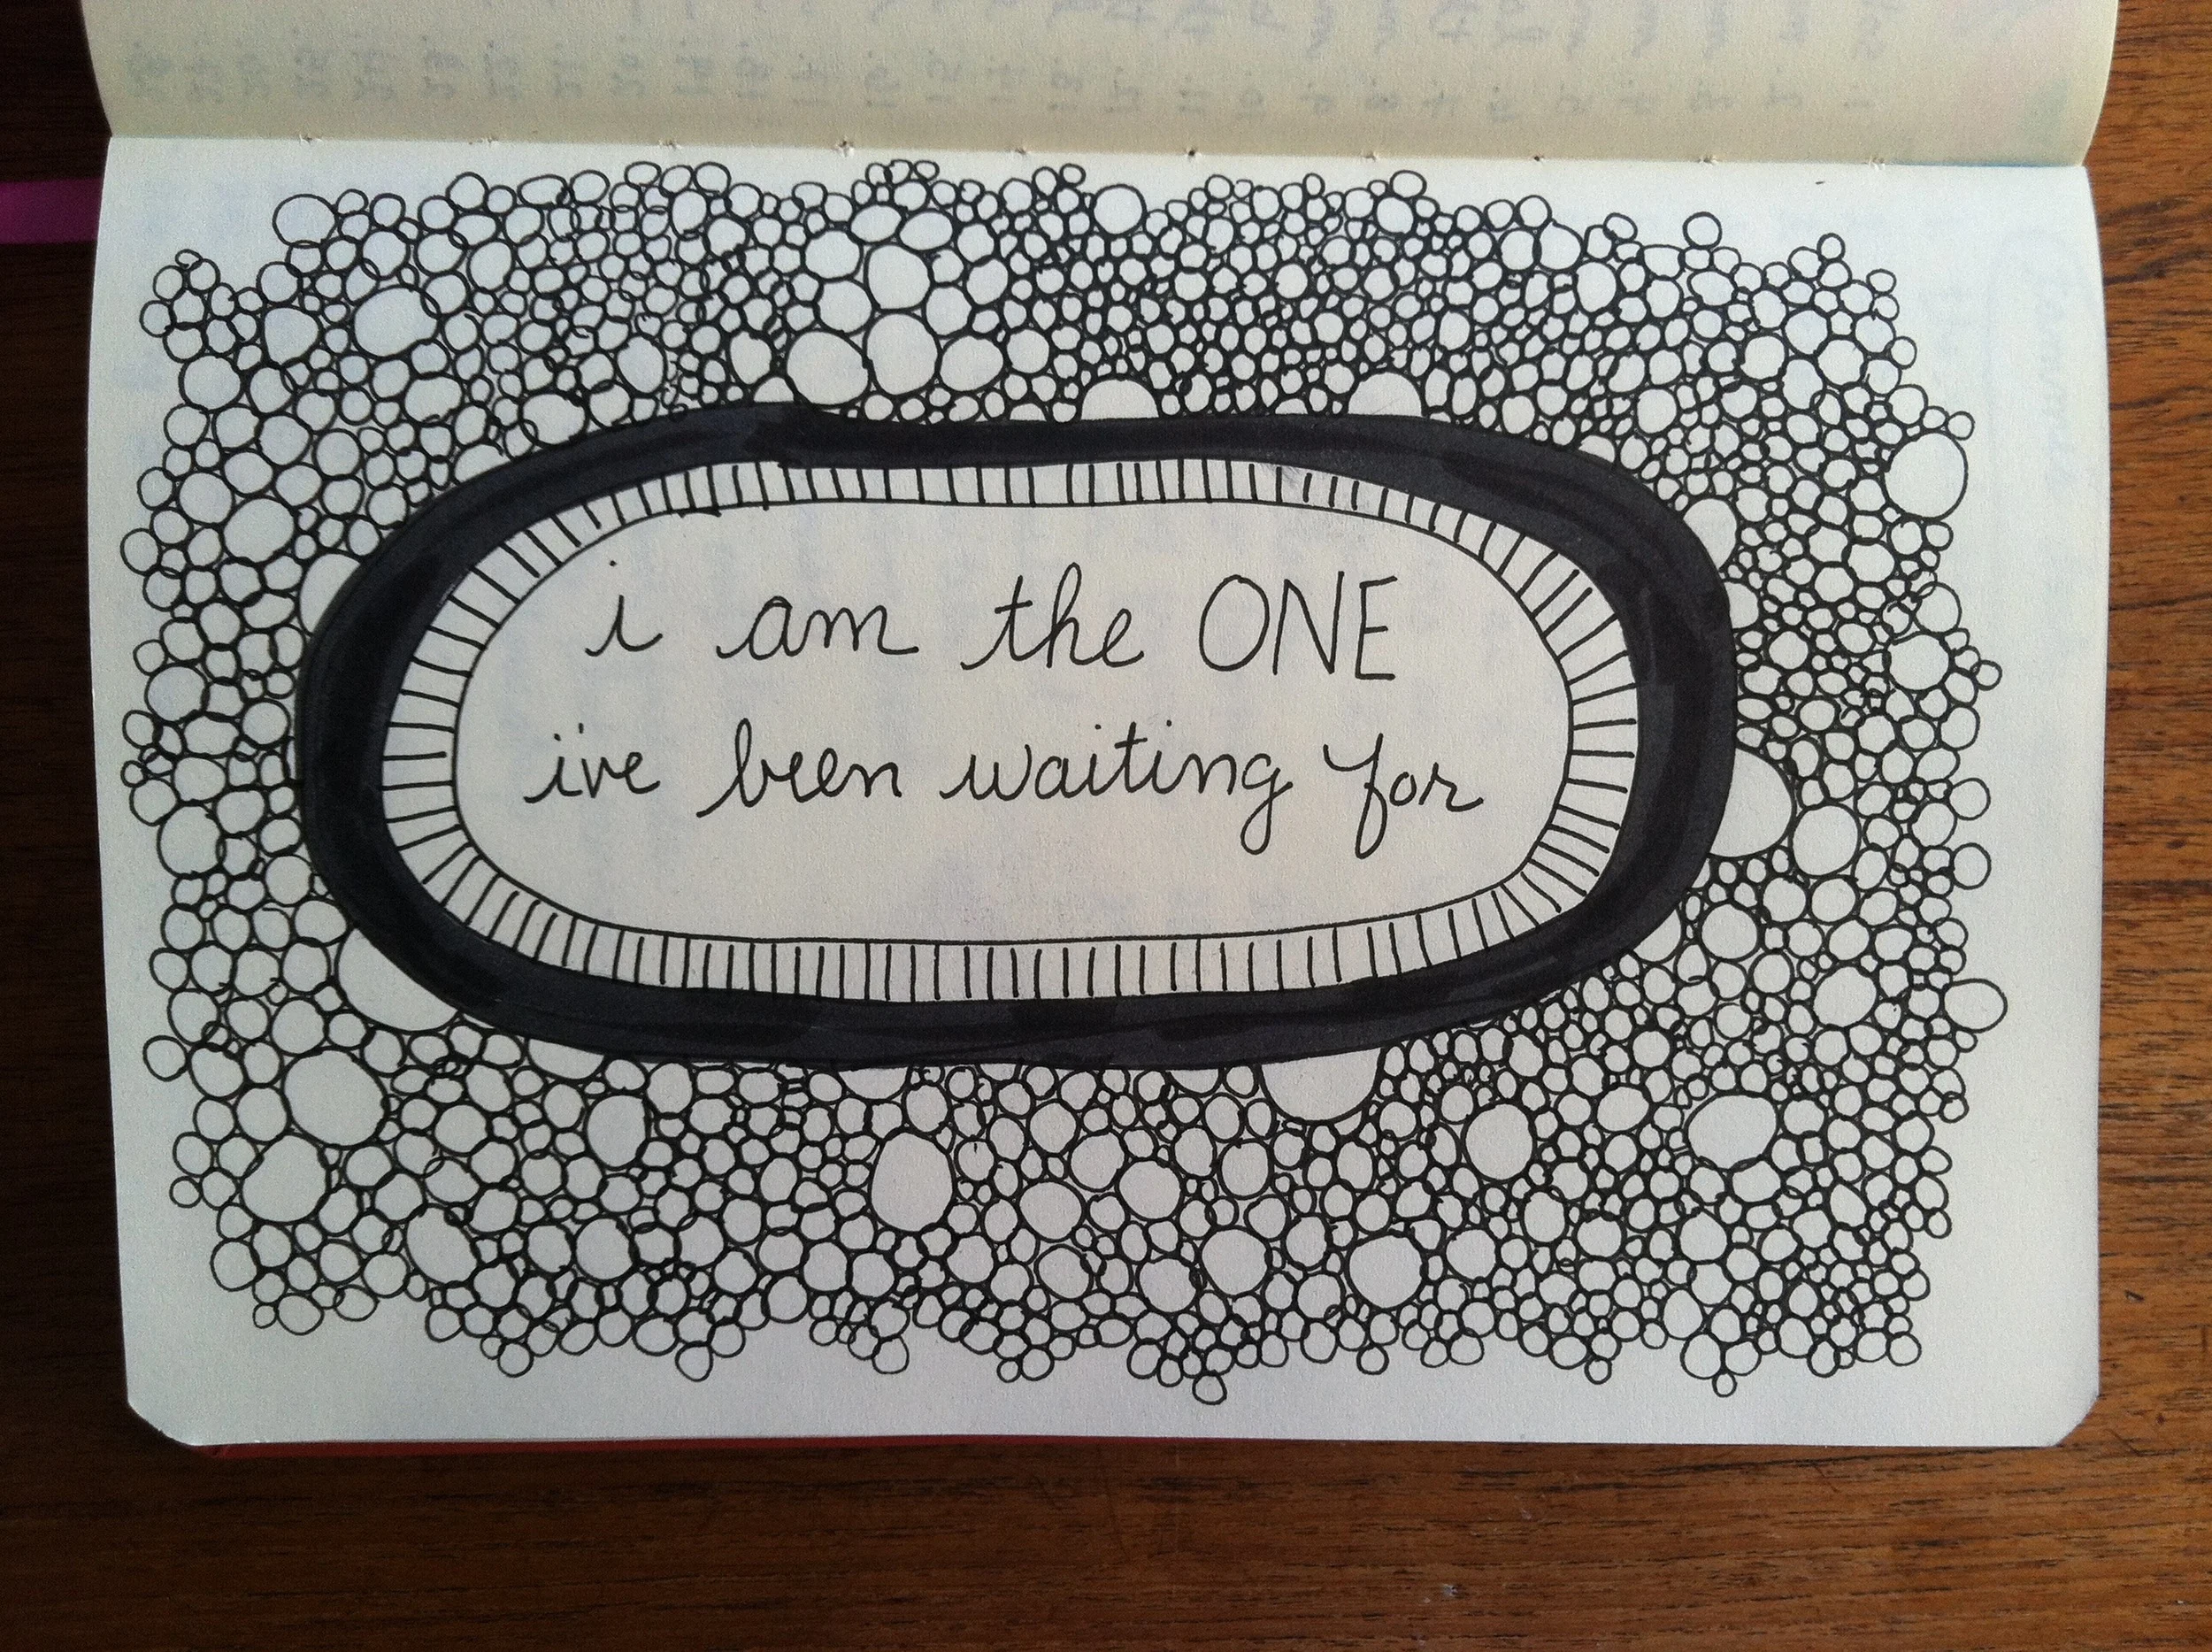 i am the ONE
i've been waiting for